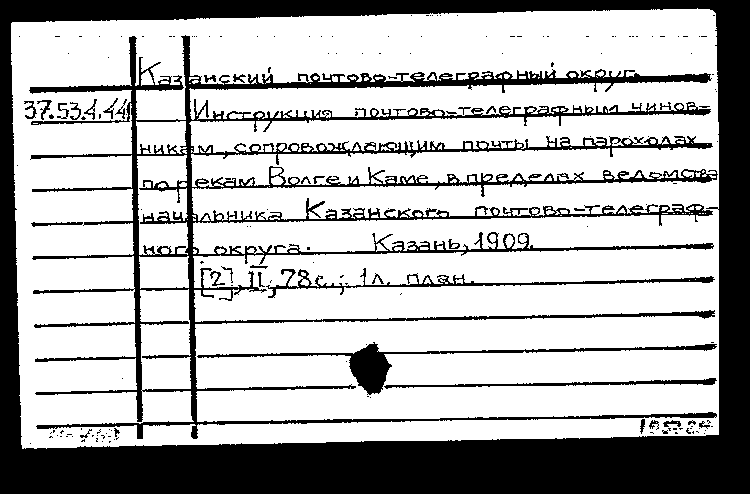 Казанский почтово-телеграфный округ.
37.53.4.44
Инструкция почтово-телеграфным чинов-
никам, сопровождающим почты на пароходах
по рекам Волге и Каме, в пределах ведомства
начальника Казанского почтово-телеграф-
ного округа. Казань, 1909.
[2], II, 78 с.; 1 л. план.